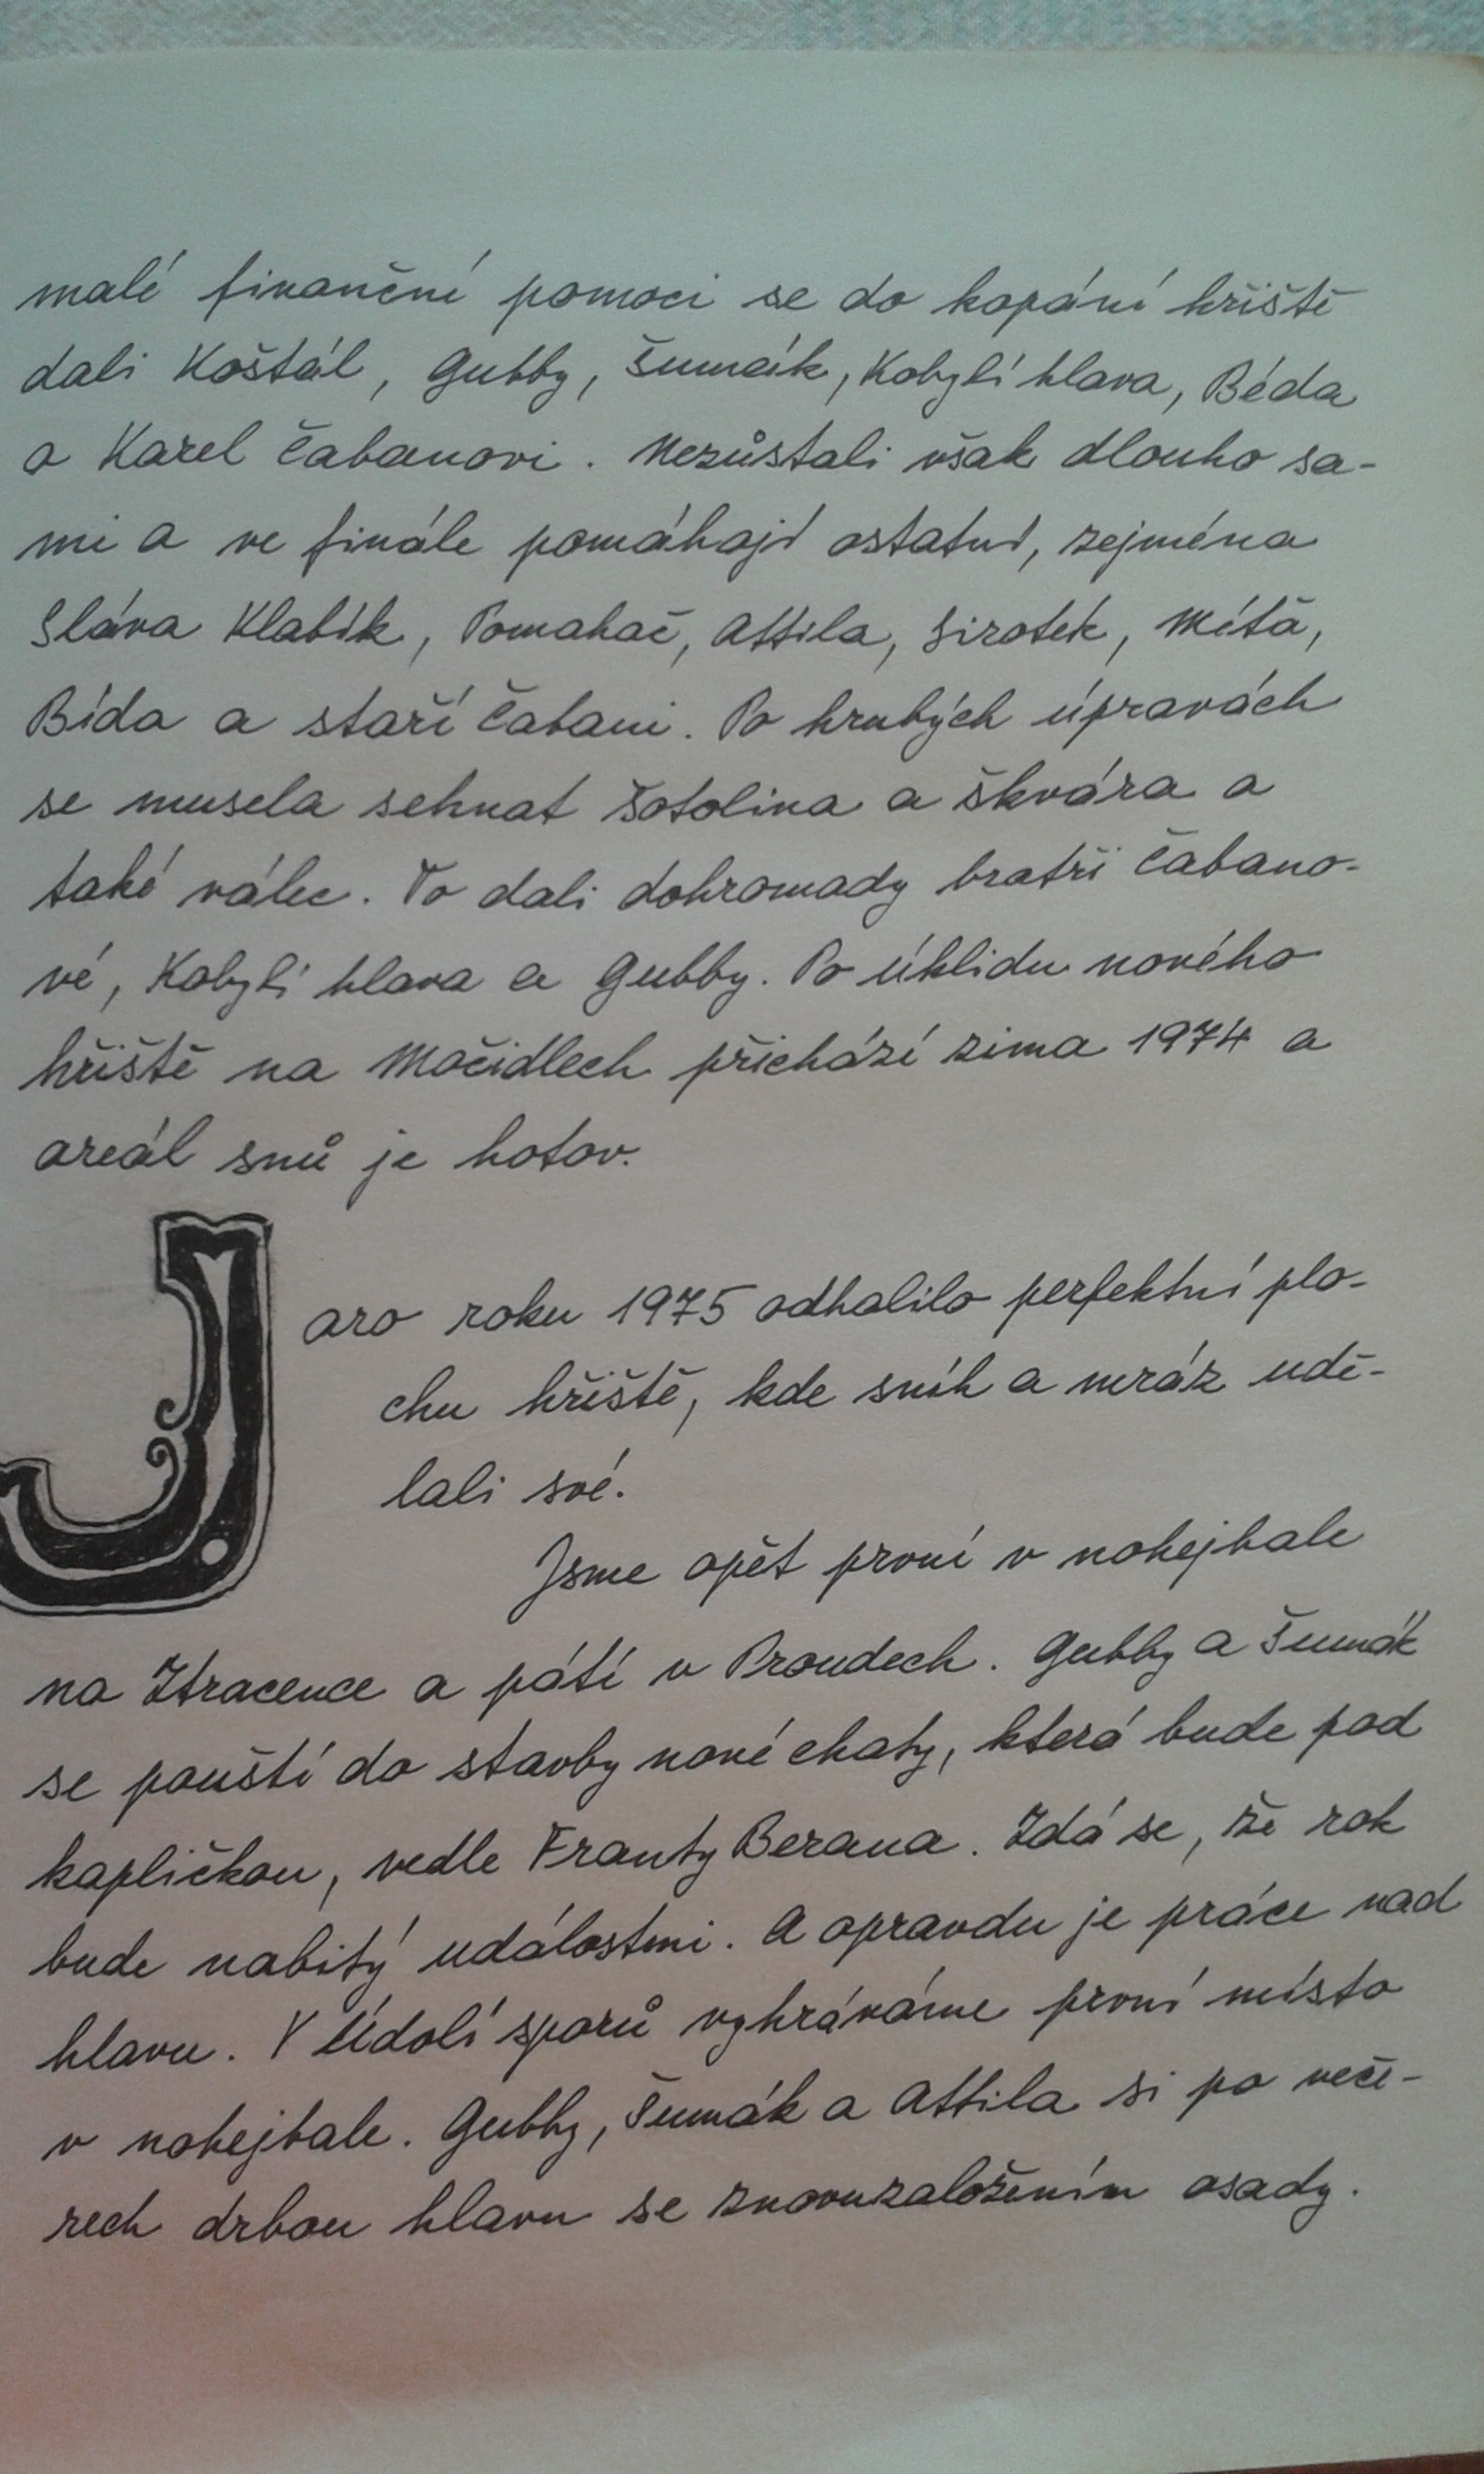 malé finanční pomoci se do kopání hřiště
dali Koštál, Gubby, Šumák, Kobylí hlava, Béda
a Karel Čabanovi. Nezůstali však dlouho sa-
mi a ve finále pomáhají ostatní, zejména
Sláva Klabík, Pomahač, Attila, Sirotek, Míťa,
Bída a staří Čabani. Po hrubých úpravách
se musela sehnat šotolina a škvára a
také válec. To dali dohromady bratři Čabano-
vé, Kobylí hlava a Gubby. Po úklidu nového
hřiště na Močidlech přichází zima 1974 a
areál snů je hotov.
Jaro roku 1975 odhalilo perfektní plo-
chu hřiště, kde sníh a mráz udě-
lali své.
Jsme opět první v nohejbale
na Ztracence a pátí v Proudech. Gubby a Šumák
se pouští do stavby nové chaty, která bude pod
kapličkou, vedle Franty Berana. Zdá se, že rok
bude nabitý událostmi. A opravdu je práce nad
hlavu. V Údolí sporů vyhráváme první místo
v nohejbale. Gubby, Šumák a Attila si po veče-
rech drbou hlavu se znovuzaložením osady.